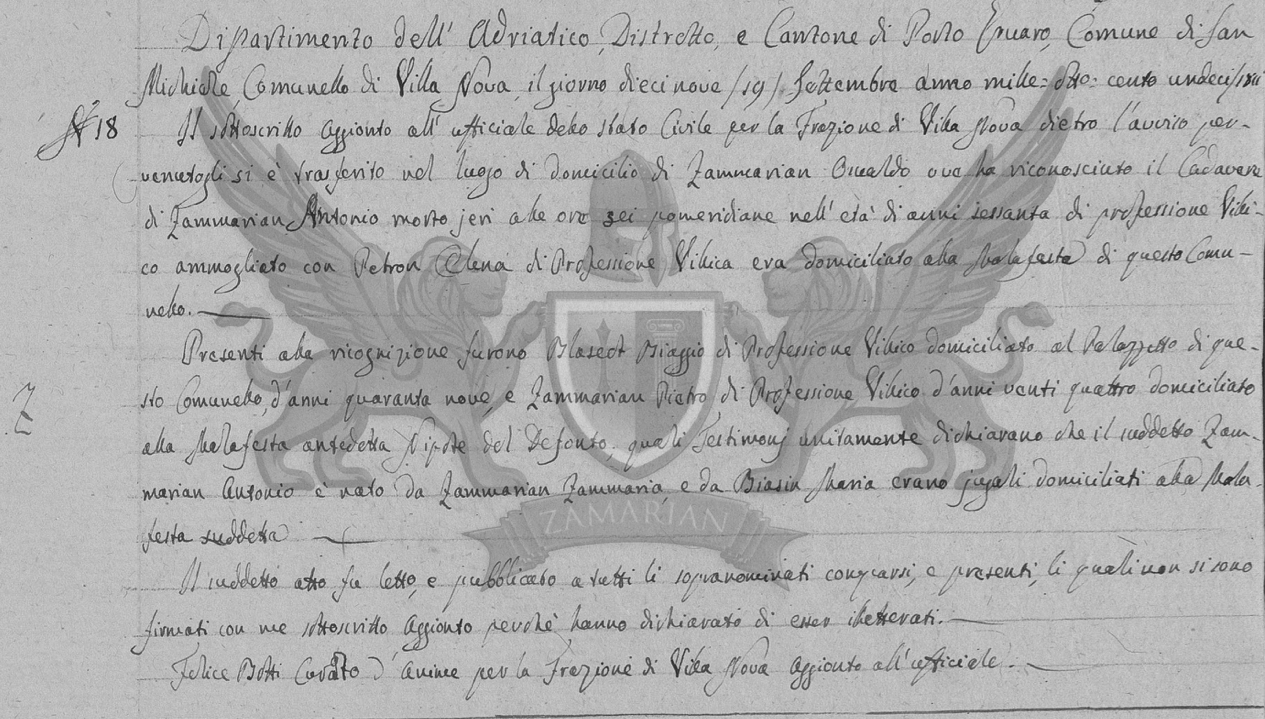 Dipartimento dell' Adriatico, Distretto, e Cantone di Porto Gruaro, Comune di San
Michiele, Comunello di Villa Nova, il giorno diecinove /19/ Settembre anno mille=otto=cento undeci/1811
N 18 Il sottoscritto Aggionto all' ufficiale dello stato Civile per la Frazione di Villa Nova dietro l'avviso per-
venutogli si è trasferito nel luogo di domicilio di Zammarian Osvaldo ove ha riconosciuto il Cadavere
di Zammarian Antonio morto jeri alle ore sei pomeridiane nell' età di anni sessanta di professione Villi-
co ammogliato con Petron Elena di Professione Villica era domiciliato alla Malafesta di questo Comu-
nello.
Presenti alla ricognizione furono Blaseot Biaggio di Professione Villico domiciliato al Palazzetto di que-
sto Comunello, d'anni quaranta nove, e Zammarian Pietro di Professione Villico d'anni venti quattro domiciliato
alla Malafesta antedetta Nipote del Defonto, quali Testimonj unitamente dichiarano che il suddetto Zam-
marian Antonio è nato da Zammarian Zammaria, e da Biasin Maria erano jugali domiciliati alla Mala-
festa suddetta
ZAMARIAN
Il suddetto atto fu letto, e pubblicato a tutti li sopranominati comparsi, e presenti, li quali non si sono
firmati con me sottoscritto Aggionto perchè hanno dichiarato di esser illetterati.
Felice Botti Curato d'anime per la Frazione di Villa Nova Aggionto all' ufficiale.